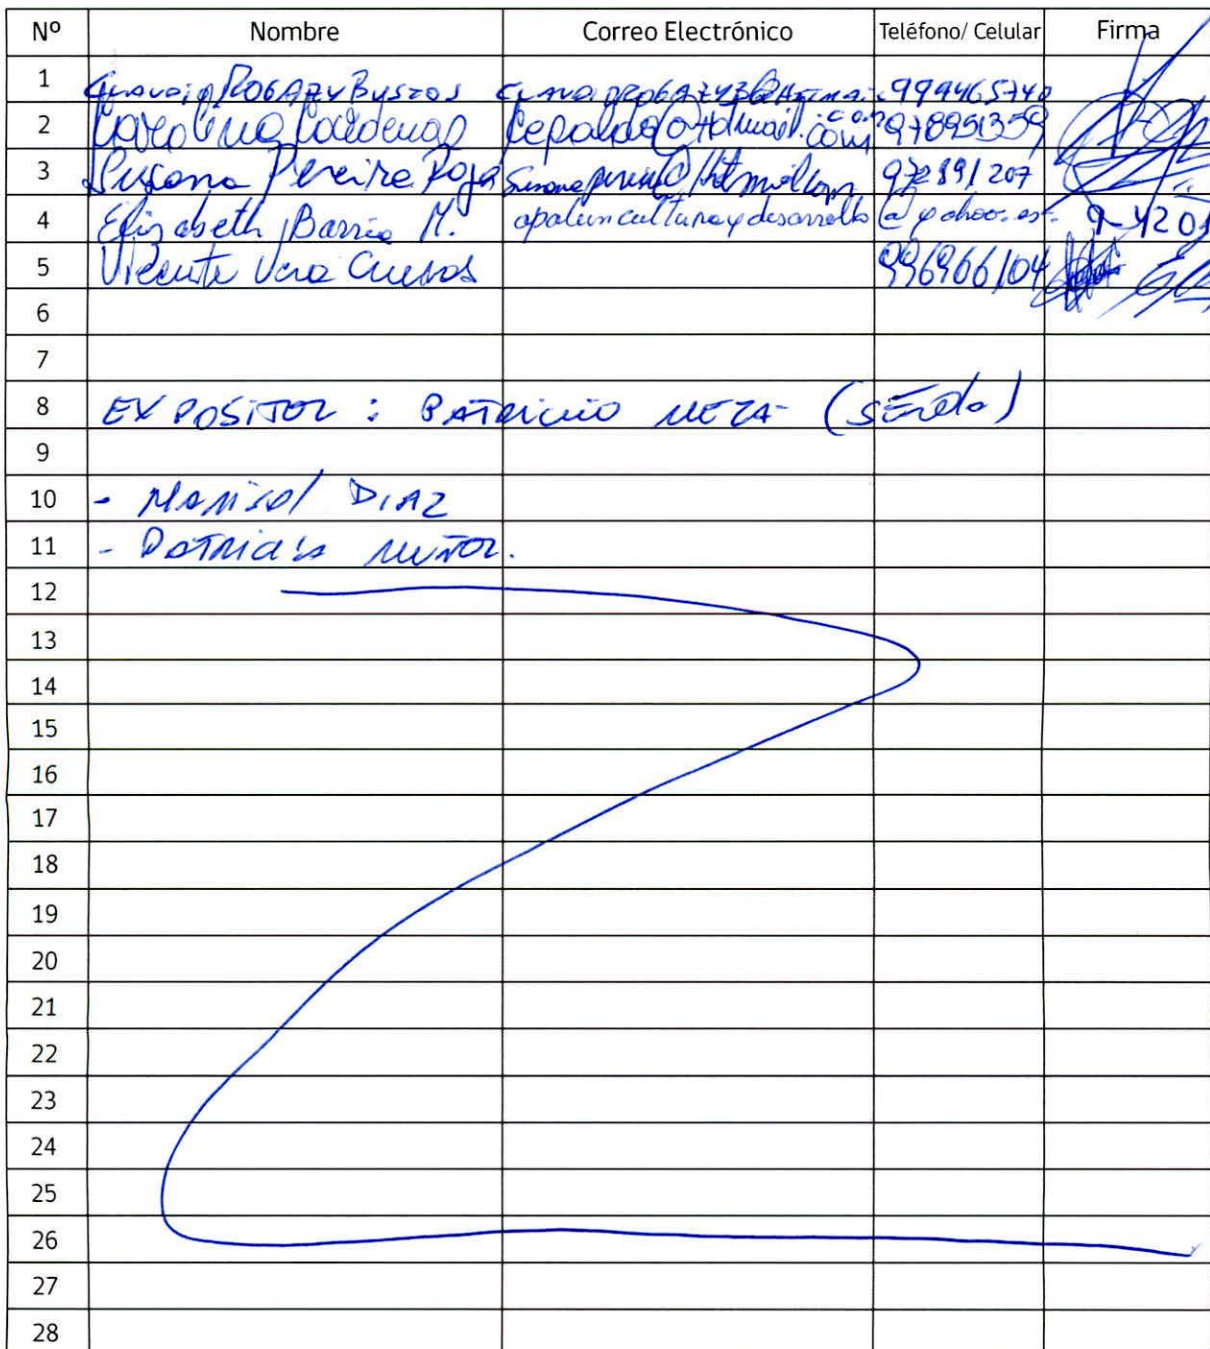 Nº Nombre Correo Electrónico Teléfono/ Celular Firma
1 Bustos 999465740
2 Carolina Cardenas cepalda@Hotmail.com 978951359
3 Susana Pereira Rojas
4 Elizabeth Barria M. apaluncultura y desarrollo @yahoo.es. 9-4205
5 Vicente Vera Cuevas 996966104
6
7
8 EXPOSITOR : PATRICIO MEZA (SENDA)
9
10 - Marisol DIAZ
11 - Patricia Muñoz.
12
13
14
15
16
17
18
19
20
21
22
23
24
25
26
27
28